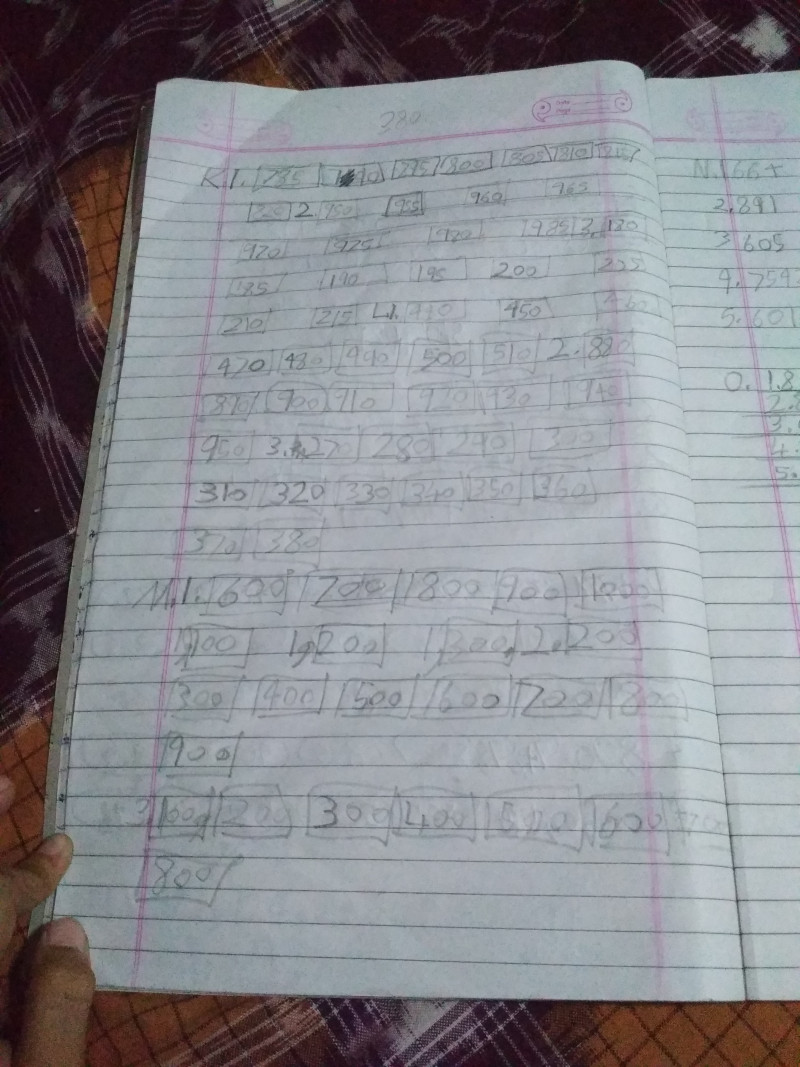 380
K.1. 785 790 795 800 805 810 815
820 2. 950 955 960 965
970 975 980 985 3. 180
185 190 195 200 205
210 215 L1. 450 460
470 480 490 500 510 2. 880
890 900 910 920 930 940
950 3. 270 280 290 300
310 320 330 340 350 360
370 380
M.1. 600 700 800 900 1000
1,100 1,200 1,300, 2. 200
300 400 500 600 700 800
900
3 100 200 300 400 500 600 700
800
N.1 66+
2. 891
3. 605
4. 754
5. 601
O. 1. 8
2.
3.
4.
5.